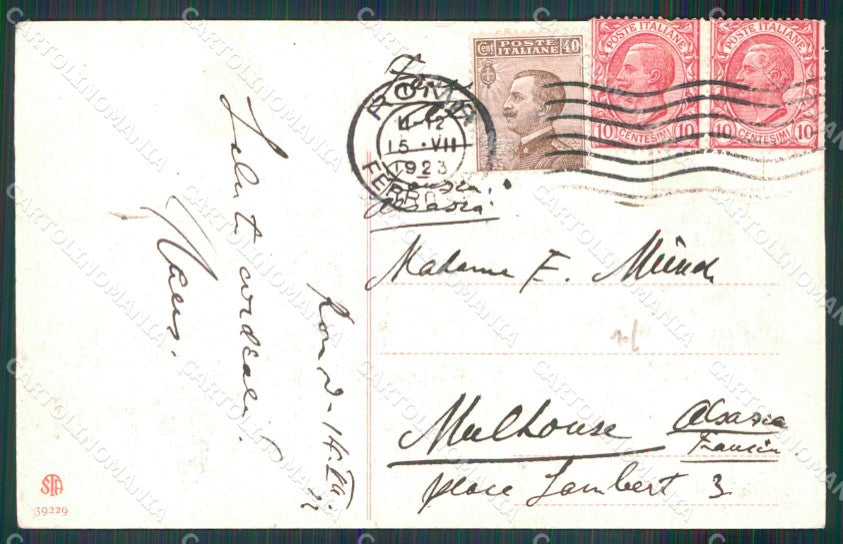 Saluti cordiali.
Rom d. 14. VII.
Cent POSTE 40
ITALIANE
POSTE ITALIANE
10 CENTESIMI 10
POSTE ITALIANE
10 CENTESIMI 10
ROMA
11-12
15 · VII
1923
FERROVIA
Alsazia
Madame E. Münch
Mulhouse Alsazia
Francia
place Lambert 3
STA
39229
CARTOLINOMANIA